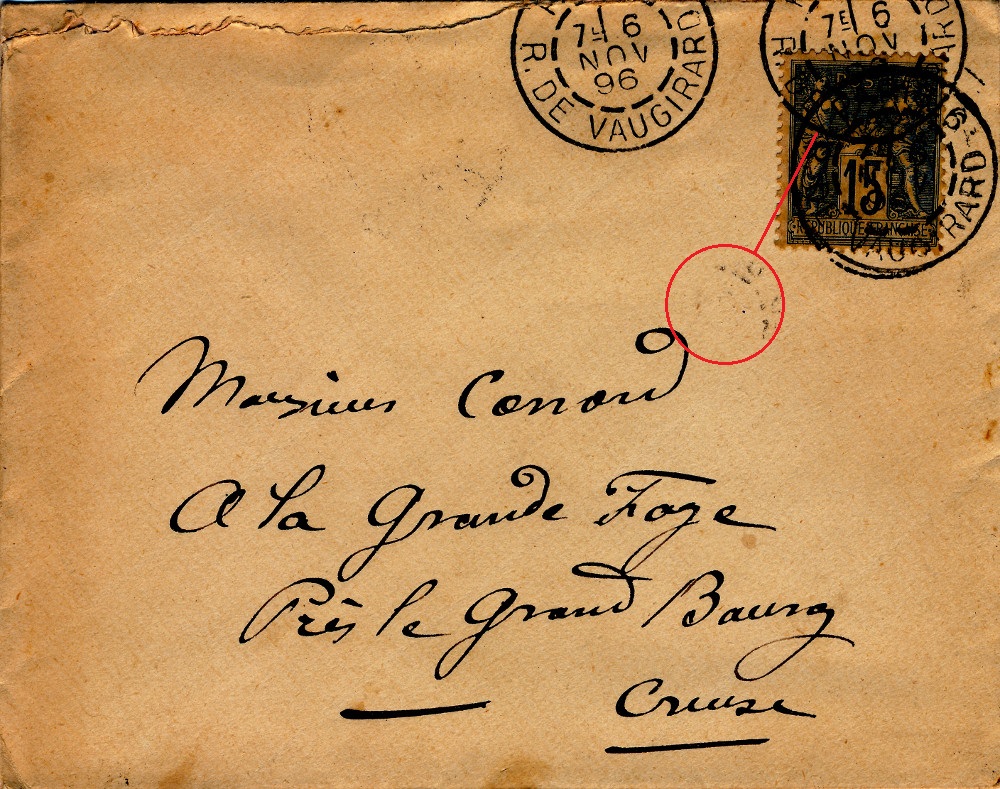 7E 6
NOV
96
R. DE VAUGIRARD
7E 6
NOV
15
REPUBLIQUE FRANCAISE
VAUGIRARD
Monsieur Conord
A la Grande Faye
Près le Grand Bourg
Creuse